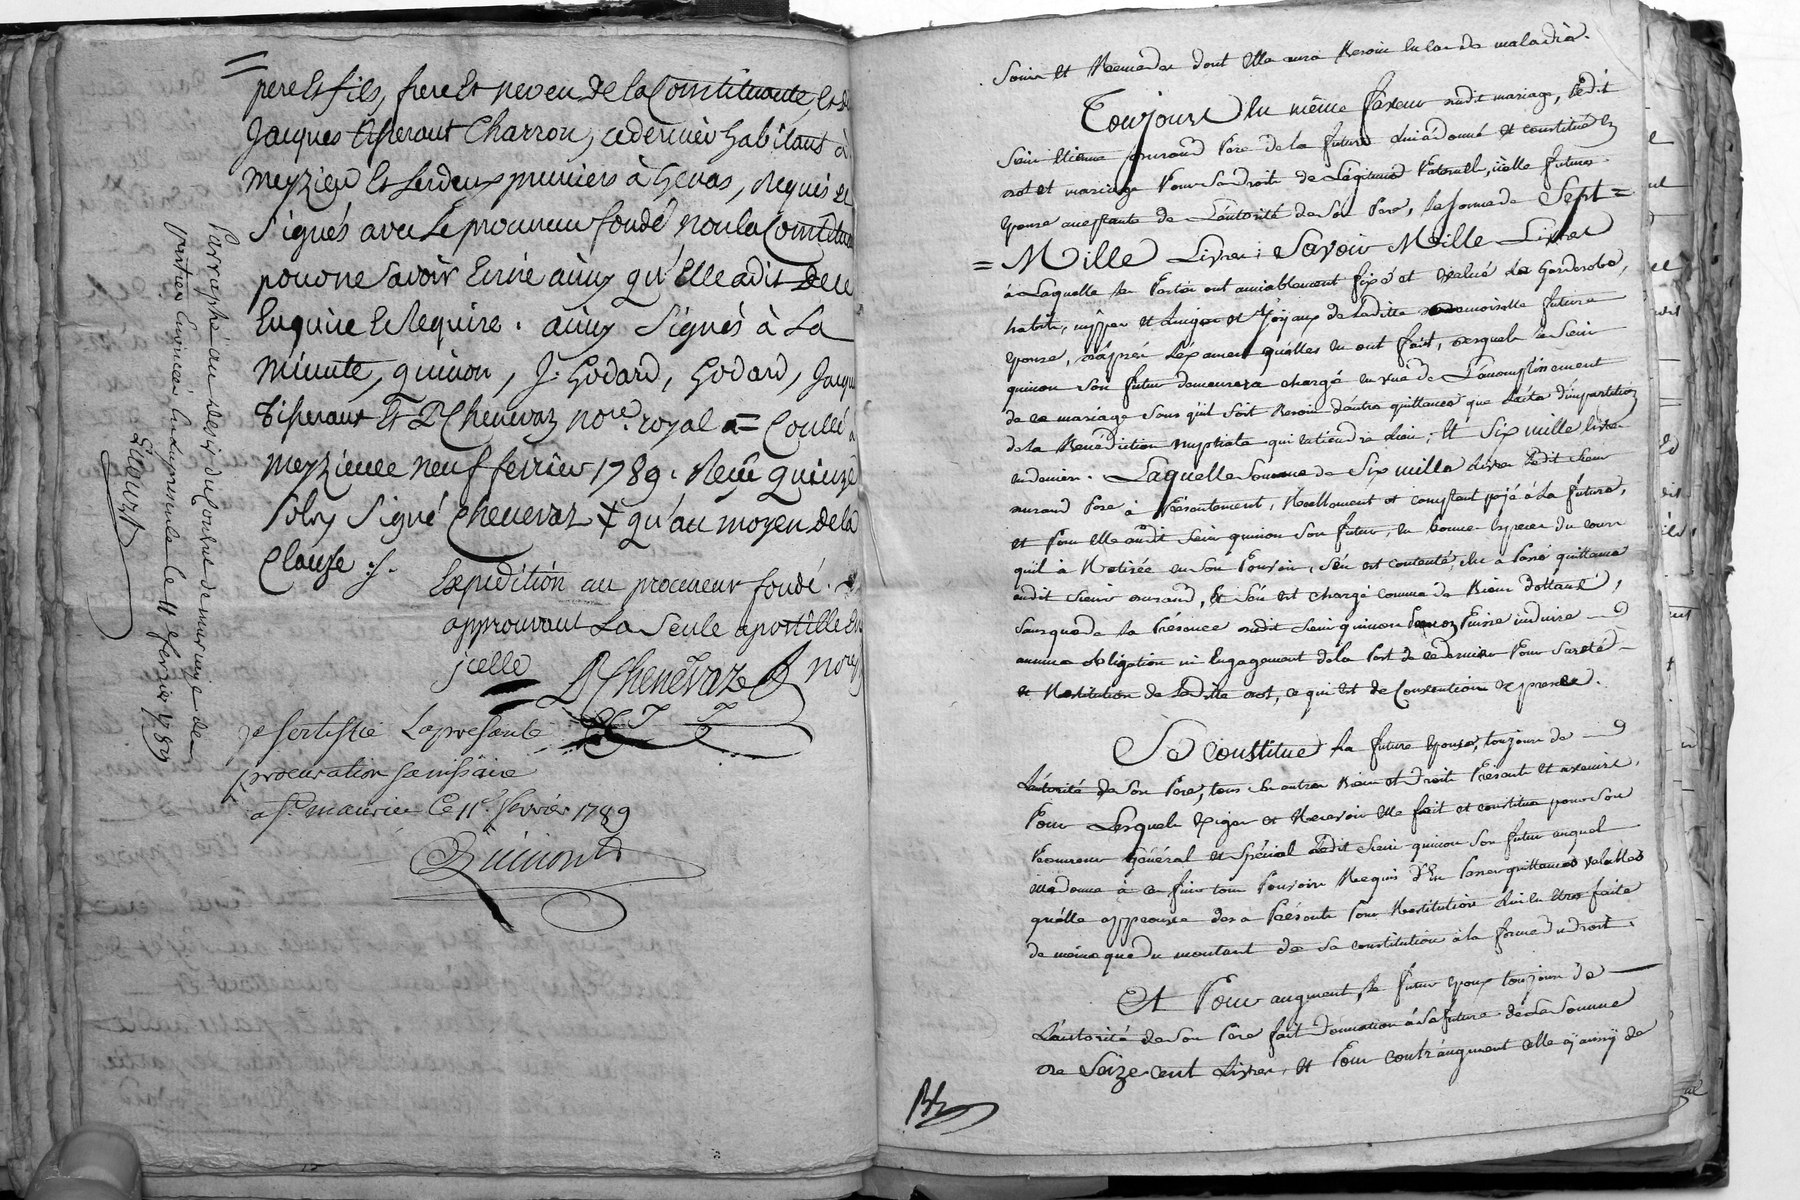 pere et fils, frere et neveu de la Constituante, et de
Jacques tisserant Charron, ce dernier habitant à
Meyzieu et les deux premiers à Genas, Requis et
Signés avec Le procureur fondé non la Constituan
pour ne savoir Ecrire ainsy qu'Elle a dit de ce
Enquise et Requise. ainsy Signés à La
Minute, quinon, J. Godard, Godard, Jacque
tisserant et D Chenevaz no.re royal = Conllé à
Meyzieu ce neuf fevrier 1789. Reçu quinze
Sols Signé Chenevaz ‡ qu'au moyen de la
Clause ./.
Expedition au procureur fondé.
approuvant La Seule apostille En
jcelle
D Chenevaz nore
je sertiffie La presante
procuration
a St. maurice Ce 11e. fevrier 1789
Quinon
Parraphé au desir du Contrat de mariage de
parties Enoncées Enduprimole Ce 11 fevrier 1789
Soins et Remedes dont elle aura Besoin En cas de maladie.
Toujours En même faveur dudit mariage, Ledit
Sieur Etienne Durand Pere de la future Lui a donné et constitué en
dot et mariage Pour Ses droits de Légitime Paternelle, icelle future
Epouse acceptante de L'autorité de Son Pere, la somme de Sept =
= Mille Livres ; Savoir Mille Livres
à Laquelle les Parties ont amiablement fixé et evalué les Garderobe,
habits, nippes et Linges et Joyaux de Ladite demoiselle future
epouse, d'après L'examen qu'elles en ont fait, desquels le Sieur
quinon Son futur demeurera chargé en vuë de L'accomplissement
de ce mariage Sans qu'il soit Besoin d'autre quittance que L'acte d'impartition
de la Bénédiction nuptiale qui en tiendra Lieu ; Et Six mille livres
en deniers. Laquelle Somme de Six mille Livres Ledit Sieur
Durand Pere à Présentement, Réellement et comptant payé à La future,
et Pour elle audit Sieur quinon Son futur, en bonnes Especes du cours
qu'il à Retirée en Son Pouvoir, S'en est contenté, En a Passé quittance
audit Sieur Durand, & S'en est chargé comme de Biens dottaux,
Sans que de la Présence dudit Sieur quinon Puisse induire
aucune obligation ni Engagement de la Part de ce dernier Pour Sureté
et Restitution de Ladite dot, ce qui est de Convention expresse.
Se constitue La future Epouse, toujours de
L'autorité de Son Pere, tous Ses autres Biens et droits Présents et avenirs,
Pour Lesquels Exiger et Recevoir Elle fait et constitue pour Son
Procureur Général et Spécial Ledit Sieur quinon Son futur auquel
Elle donne à ces fins tous Pouvoirs Requis d'En Passer quittances valables
qu'elle approuve des à Présent Pour Restitution Lui En etre faite
de même que du montant de Sa constitution à la forme du droit.
Et Pour augment, le futur Epoux toujours de
L'autorité de Son Pere fait Donnation à Sa future de La Somme
de Seize cent Livres, et Pour contr'augment elle aÿ aussÿ de